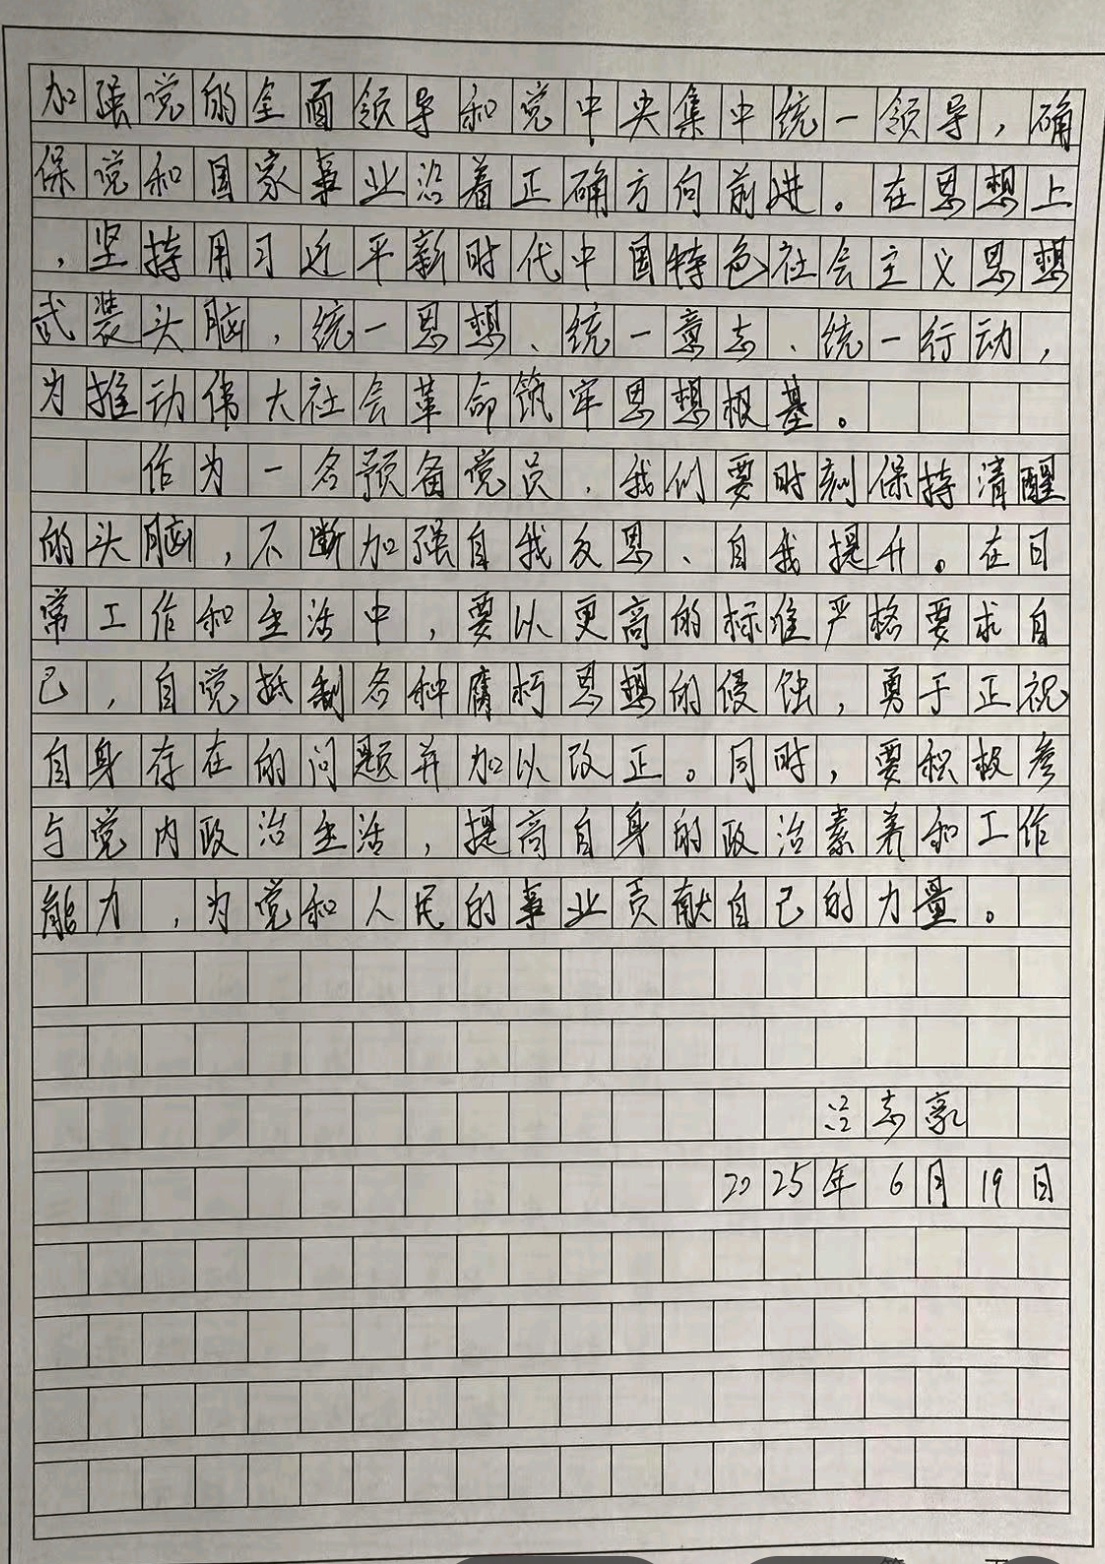 加强党的全面领导和党中央集中统一领导，确
保党和国家事业沿着正确方向前进。在思想上
，坚持用习近平新时代中国特色社会主义思想
武装头脑，统一思想、统一意志、统一行动，
为推动伟大社会革命筑牢思想根基。
作为一名预备党员，我们要时刻保持清醒
的头脑，不断加强自我反思、自我提升。在日
常工作和生活中，要以更高的标准严格要求自
己，自觉抵制各种腐朽思想的侵蚀，勇于正视
自身存在的问题并加以改正。同时，要积极参
与党内政治生活，提高自身的政治素养和工作
能力，为党和人民的事业贡献自己的力量。
志豪
2025年6月19日